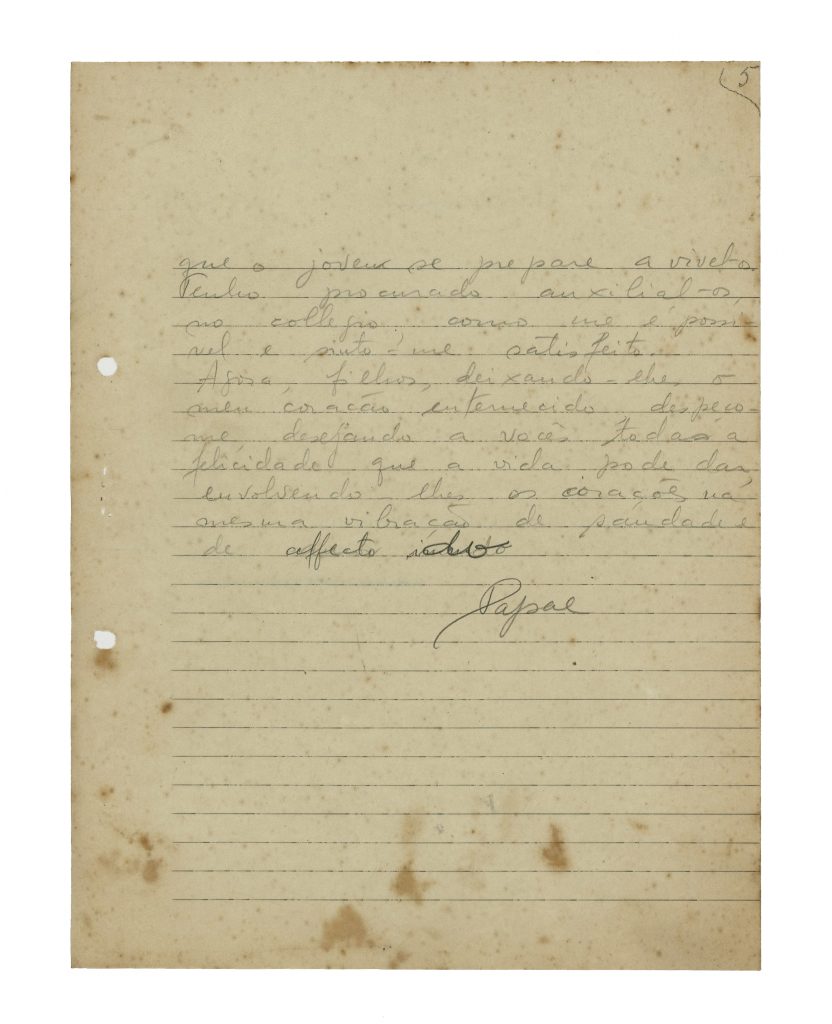 5
que o jovem se prepare a vivel-o.
Tenho procurado auxilial-os,
no collegio como me é possi-
vel e sinto-me satisfeito.
Agora, filhos, deixando-lhes o
meu coração enternecido despeço-
me, desejando a vocês todas a
felicidade que a vida pode dar,
envolvendo-lhes os corações na
mesma vibração de saudade e
de affecto
Papae